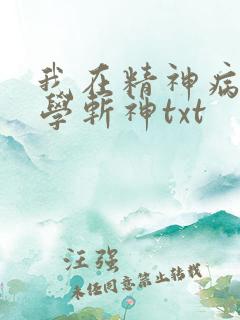 我在精神病
學斬神txt
汪强
未经同意禁止转载